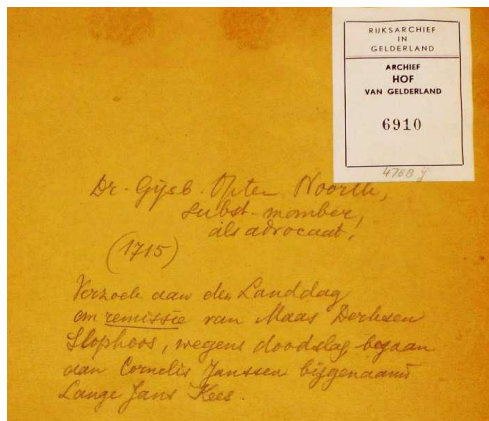 RIJKSARCHIEF
IN
GELDERLAND
ARCHIEF
HOF
VAN GELDERLAND
6910
4708 j
Dr. Gijsb. Opten Noorth,
subst-momber,
als advocaat,
(1715)
Verzoek aan den Landdag
om remissie van Maas Derksen
Slophoos, wegens doodslag, begaan
aan Cornelis Janssen bijgenaamd
Lange Jans Kees.